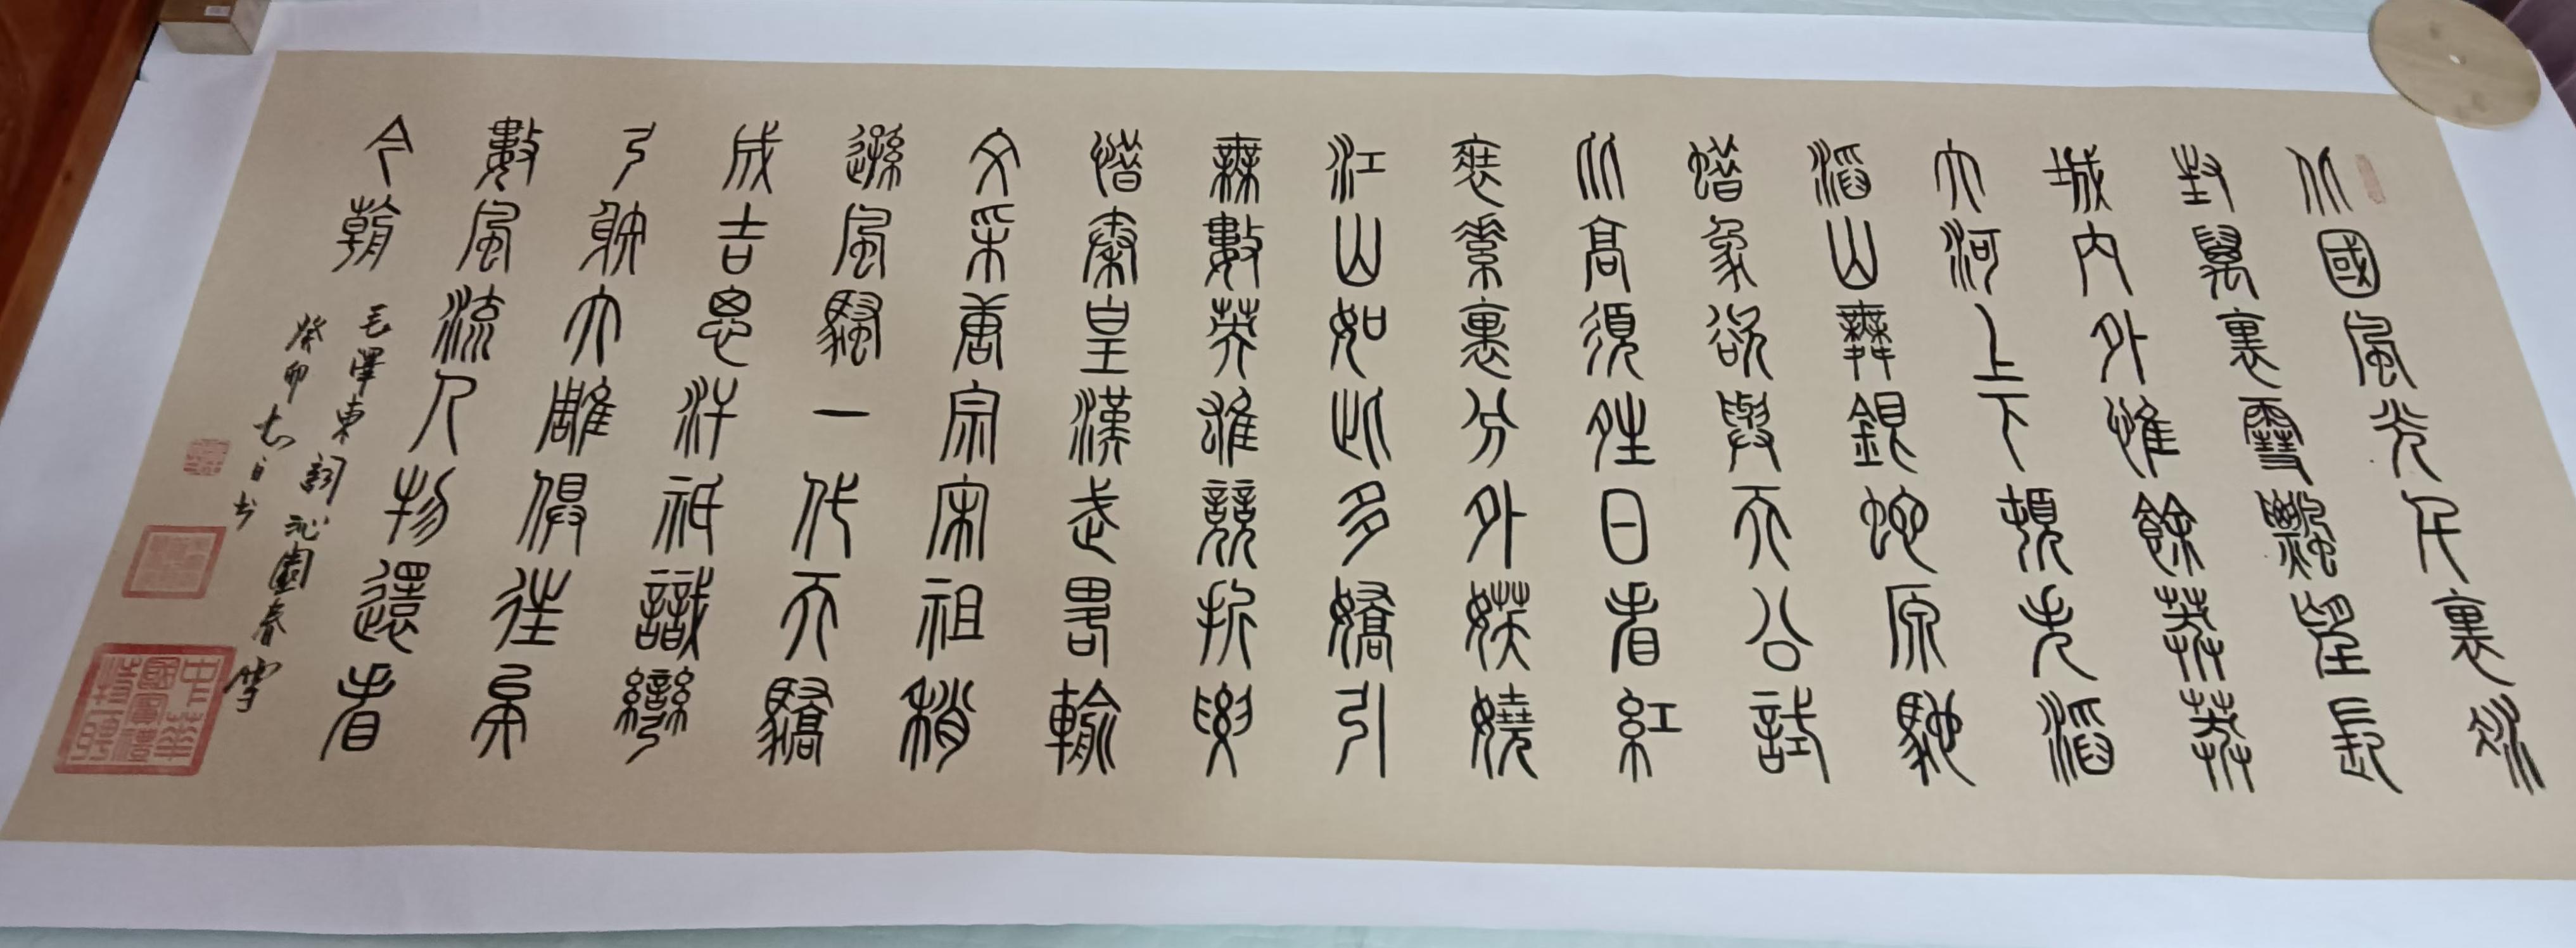 北國風光千裏冰
封萬裏雪飄望長
城內外惟餘莽莽
大河上下頓失滔
滔山舞銀蛇原馳
蜡象欲與天公試
比高須晴日看紅
裝素裹分外妖嬈
江山如此多嬌引
無數英雄競折腰
惜秦皇漢武畧輸
文采唐宗宋祖稍
遜風騷一代天驕
成吉思汗祇識彎
弓射大雕俱往矣
數風流人物還看
今朝
毛澤東詞沁園春雪
癸卯